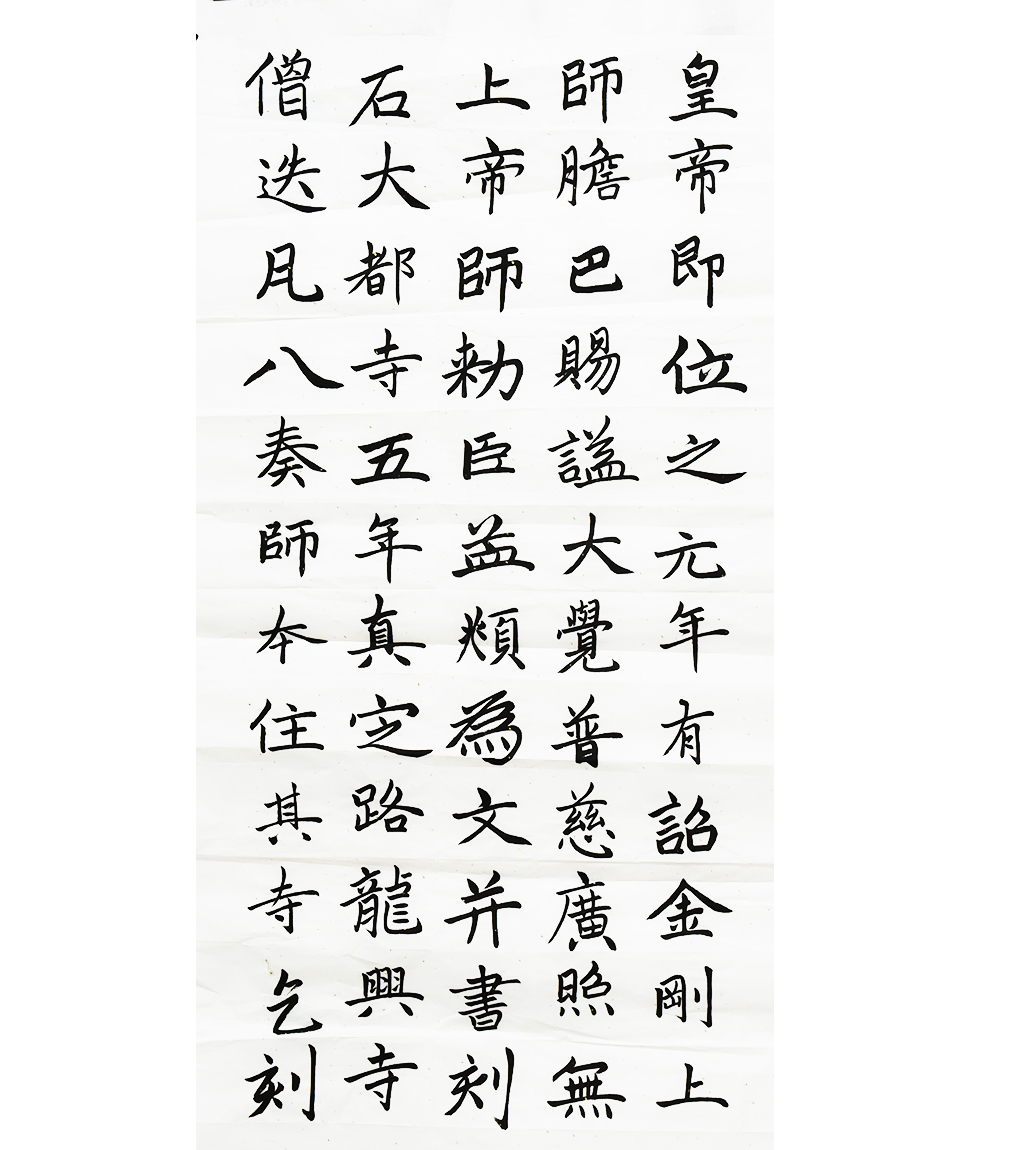 皇帝即位之元年有詔金剛上
師膽巴賜謚大覺普慈廣照無
上帝師勑臣孟頫為文并書刻
石大都寺五年真定路龍興寺
僧迭凡八奏師本住其寺乞刻